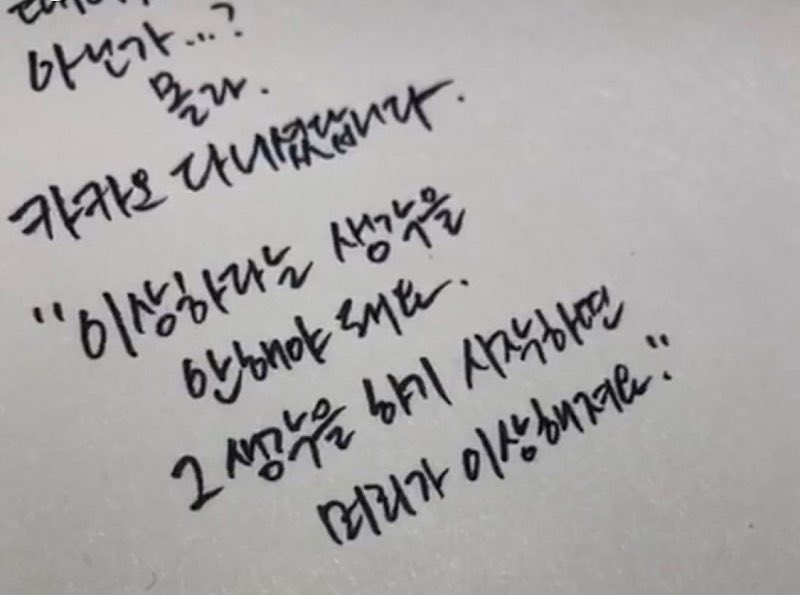 아닌가...?
몰라.
카카오 다니셨답니다.
"이상하다는 생각을
안해야 돼요.
그 생각을 하기 시작하면
머리가 이상해져요."